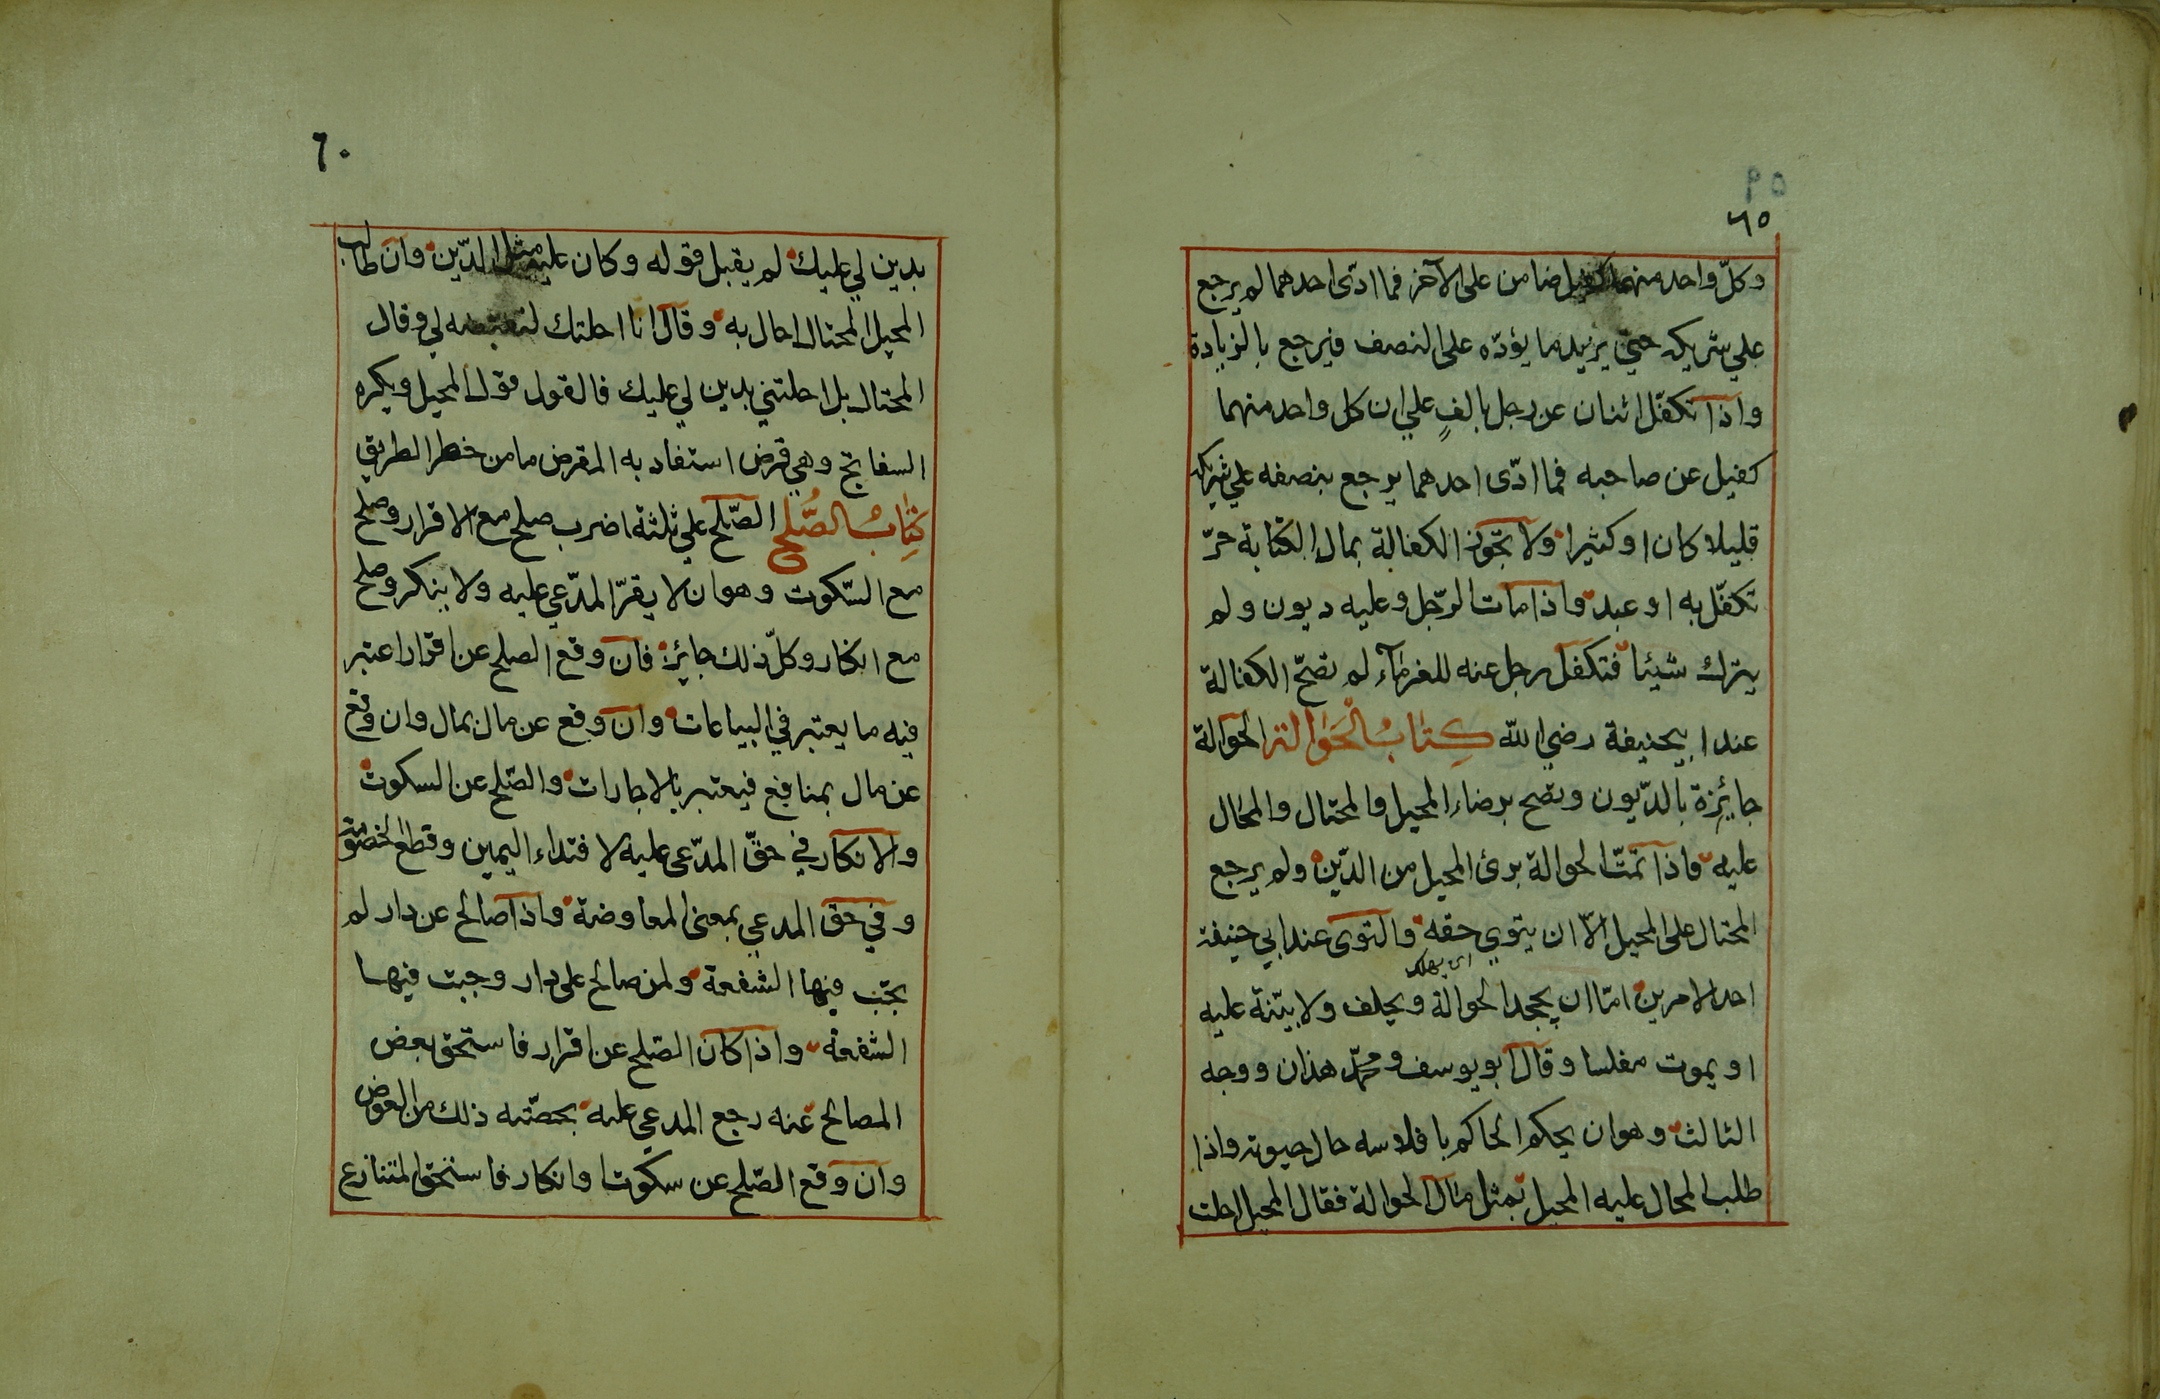 ٥٩
٦٥
وكلّ واحد منهما كفيل ضامن على الآخر فما ادّى احدهما لم يرجع
علي شريكه حتي يزيد ما يؤدّه على النصف فيرجع بالزيادة
واذا تكفّل اثنان عن رجل بالفٍ علي ان كل واحد منهما
كفيل عن صاحبه فما ادّى احدهما يرجع بنصفه علي شريكه
قليلا كان او كثيرا ولا تجوز الكفالة بمال الكتابة حرّ
تكفّل به او عبد واذا مات الرّجل وعليه ديون ولم
يترك شيئا فتكفل رجل عنه للغرمآء لم تصحّ الكفالة
عند ابيحنيفة رضي الله كتاب الحوالة الحوالة
جايزة بالدّيون وتصح برضاء المحيل والمحتال والمحال
عليه واذا تمّت الحوالة برئ المحيل من الدّين ولم يرجع
المحتال على المحيل الّا ان يتوي حقه والتوى عند ابي حنيفة
اى يهلك
احد الامرين امّا ان يجحد الحوالة ويحلف ولا بيّنة عليه
او يموت مفلسا وقال ابو يوسف ومحمّد هذان ووجه
الثالث وهو ان يحكم الحاكم بافلاسه حال حيوته واذا
طلب المحال عليه المحيل بمثل مال الحوالة فقال المحيل احلت
٦٠
بدين لي عليك لم يقبل قوله وكان عليه مثل الدّين وان طالب
المحيل المحتال احال به وقال انا احلتك لتقبضه لي وقال
المحتال بل احلتني بدين لي عليك فالقول قول المحيل ويكره
السفاتج وهي قرض استفاد به المقرض ما من خطر الطريق
كتاب الصّلح الصّلح علي ثلثة اضرب صلح مع الاقرار وصلح
مع السّكوت وهو ان لا يقرّ المدّعي عليه ولا ينكر وصلح
مع انكار وكلّ ذلك جايز فان وقع الصلح عن اقرار اعتبر
فيه ما يعتبر في البياعات وان وقع عن مال بمال وان وقع
عن مال بمنافع فيعتبر بالاجارات والصّلح عن السكوت
والانكار في حقّ المدّعى عليه لافتداء اليمين وقطع الخصومة
وفي حق المدعي بمعنى المعاوضة واذا صالح عن دار لم
يجب فيها الشفعة ولمن صالح على دار وجبت فيها
الشفعة واذا كان الصّلح عن اقرار فاستحق بعض
المصالح عنه رجع المدعي عليه بحصّته ذلك من العوض
وان وقع الصّلح عن سكوت او انكار فاستحق المتنازع